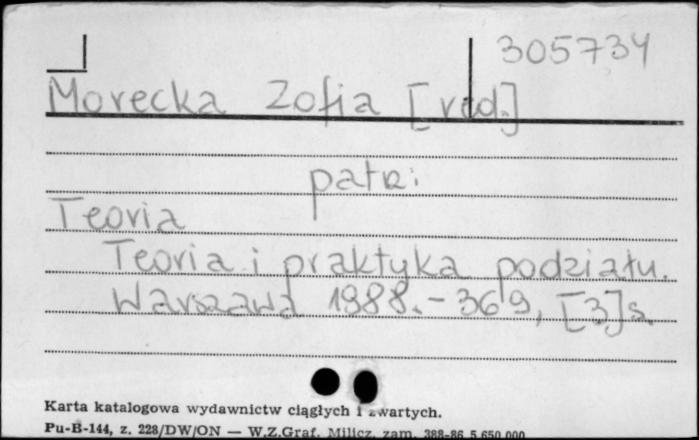 305734
Morecka Zofia [red.]
patrz:
Teoria
Teoria i praktyka podziału.
Warszawa 1988. - 369, [3] s.
Karta katalogowa wydawnictw ciągłych i zwartych.
Pu-B-144, z. 228/DW/ON — W.Z.Graf. Milicz, zam. 388-86 5.650.000